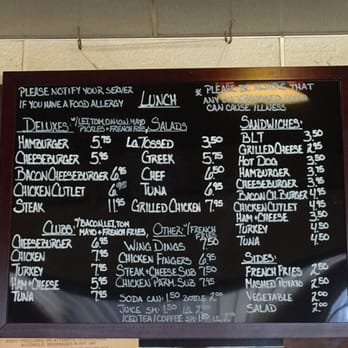 PLEASE NOTIFY YOUR SERVER
IF YOU HAVE A FOOD ALLERGY
LUNCH
* PLEASE BE THAT
ANY
CAN CAUSE ILLNESS
DELUXES W/LET, TOM, ONION, MAYO
PICKLES + FRENCH FRIES
HAMBURGER 5.75
CHEESEBURGER 5.95
BACON CHEESEBURGER 6.95
CHICKEN CUTLET 6.95
STEAK 11.95
SALADS
LG TOSSED 3.50
GREEK 5.75
CHEF 6.50
TUNA 6.95
GRILLED CHICKEN 7.95
SANDWICHES:
BLT 3.50
GRILLED CHEESE 2.95
HOT DOG 3.50
HAMBURGER 3.75
CHEESEBURGER 3.95
BACON CH. BURGER 4.95
CHICKEN CUTLET 4.95
HAM + CHEESE 3.50
TURKEY 4.50
TUNA 4.50
CLUBS: *BACON, LET, TOM,
MAYO + FRENCH FRIES
CHEESEBURGER 6.95
CHICKEN 7.95
TURKEY 7.95
HAM + CHEESE 5.95
TUNA 6.95
OTHER *FRENCH
WING DINGS
CHICKEN FINGERS 6.95
STEAK + CHEESE SUB 7.50
CHICKEN PARM SUB 7.50
SODA CAN: 1.50 BOTTLE 2.00
JUICE SM: 1.50 LG. 2.00
ICED TEA / COFFEE SM: 1.50 LG. 2.00
SIDES:
FRENCH FRIES 2.50
MASHED POTATO 2.50
VEGETABLE 2.00
SALAD 2.00